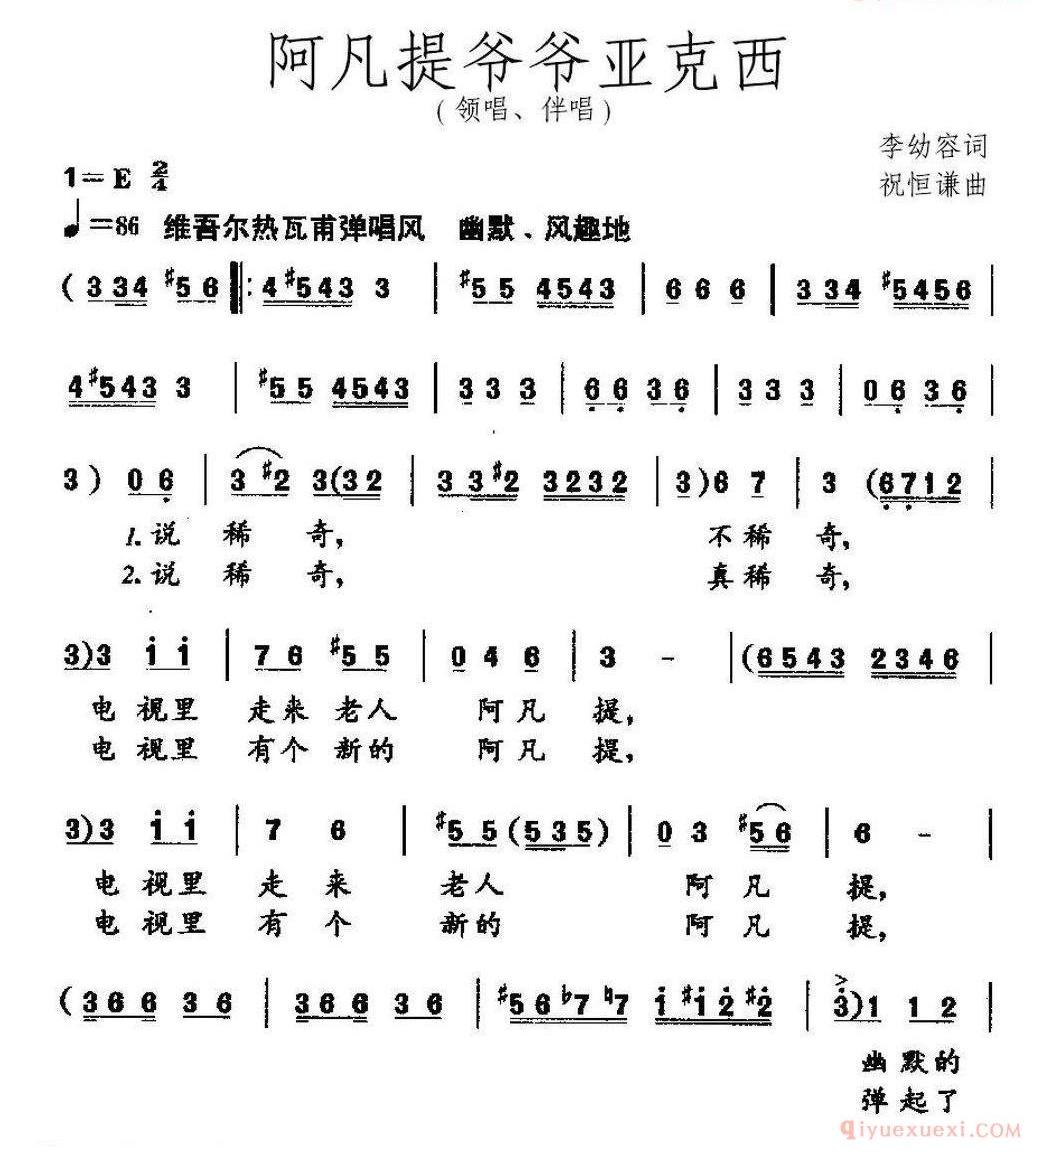 阿凡提爷爷亚克西
(领唱、伴唱)
李幼容词
祝恒谦曲
1=E 2/4
♩=86 维吾尔热瓦甫弹唱风 幽默、风趣地
( 3 3 4 #5 6 ‖: 4 #5 4 3 3 | #5 5 4 5 4 3 | 6 6 6 | 3 3 4 #5 4 5 6 |
4 #5 4 3 3 | #5 5 4 5 4 3 | 3 3 3 | 6 6 3 6 | 3 3 3 | 0 6 3 6 |
3 ) 0 6 | 3 #2 3 ( 3 2 | 3 3 #2 3 2 3 2 | 3 ) 6 7 | 3 ( 6 7 1 2 |
1.说 稀 奇, 不 稀 奇,
2.说 稀 奇, 真 稀 奇,
3 ) 3 1 1 | 7 6 #5 5 | 0 4 6 | 3 - | ( 6 5 4 3 2 3 4 6 |
电 视 里 走 来 老 人 阿 凡 提,
电 视 里 有 个 新 的 阿 凡 提,
3 ) 3 1 1 | 7 6 | #5 5 ( 5 3 5 ) | 0 3 #5 6 | 6 - |
电 视 里 走 来 老 人 阿 凡 提,
电 视 里 有 个 新 的 阿 凡 提,
( 3 6 6 3 6 | 3 6 6 3 6 | #5 6 ♭7 ♮7 1 #1 2 #2 | 3 ) 1 1 2 |
幽 默 的
弹 起 了
qiyuexuexi.COM